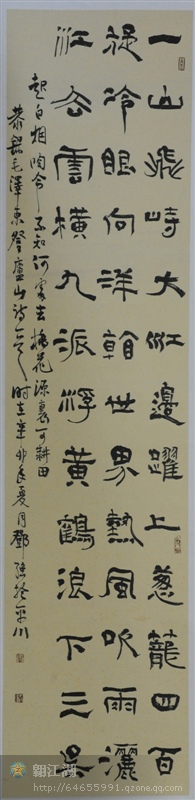 一山飛峙大江邊躍上蔥籠四百
旋冷眼向洋看世界熱風吹雨灑
江天雲橫九派浮黃鶴浪下三吳
起白烟陶令不知何處去桃花源裏可耕田
恭錄毛澤東登廬山詩一首時在辛卯年夏月鄧川
江湖
http://64655991.qzone.qq.com